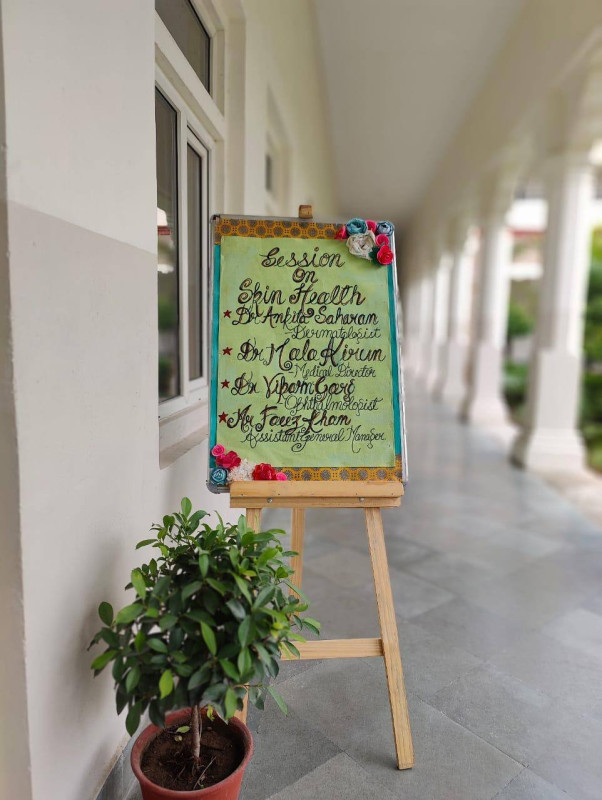 Session
on
Skin Health
Dr. Ankita Saharan
-Dermatologist
Dr. Mala Kirun
-Medical Director
Dr Vipam Garg
-Ophtalmologist
Mr Faiz Khan
Assistant General Manager